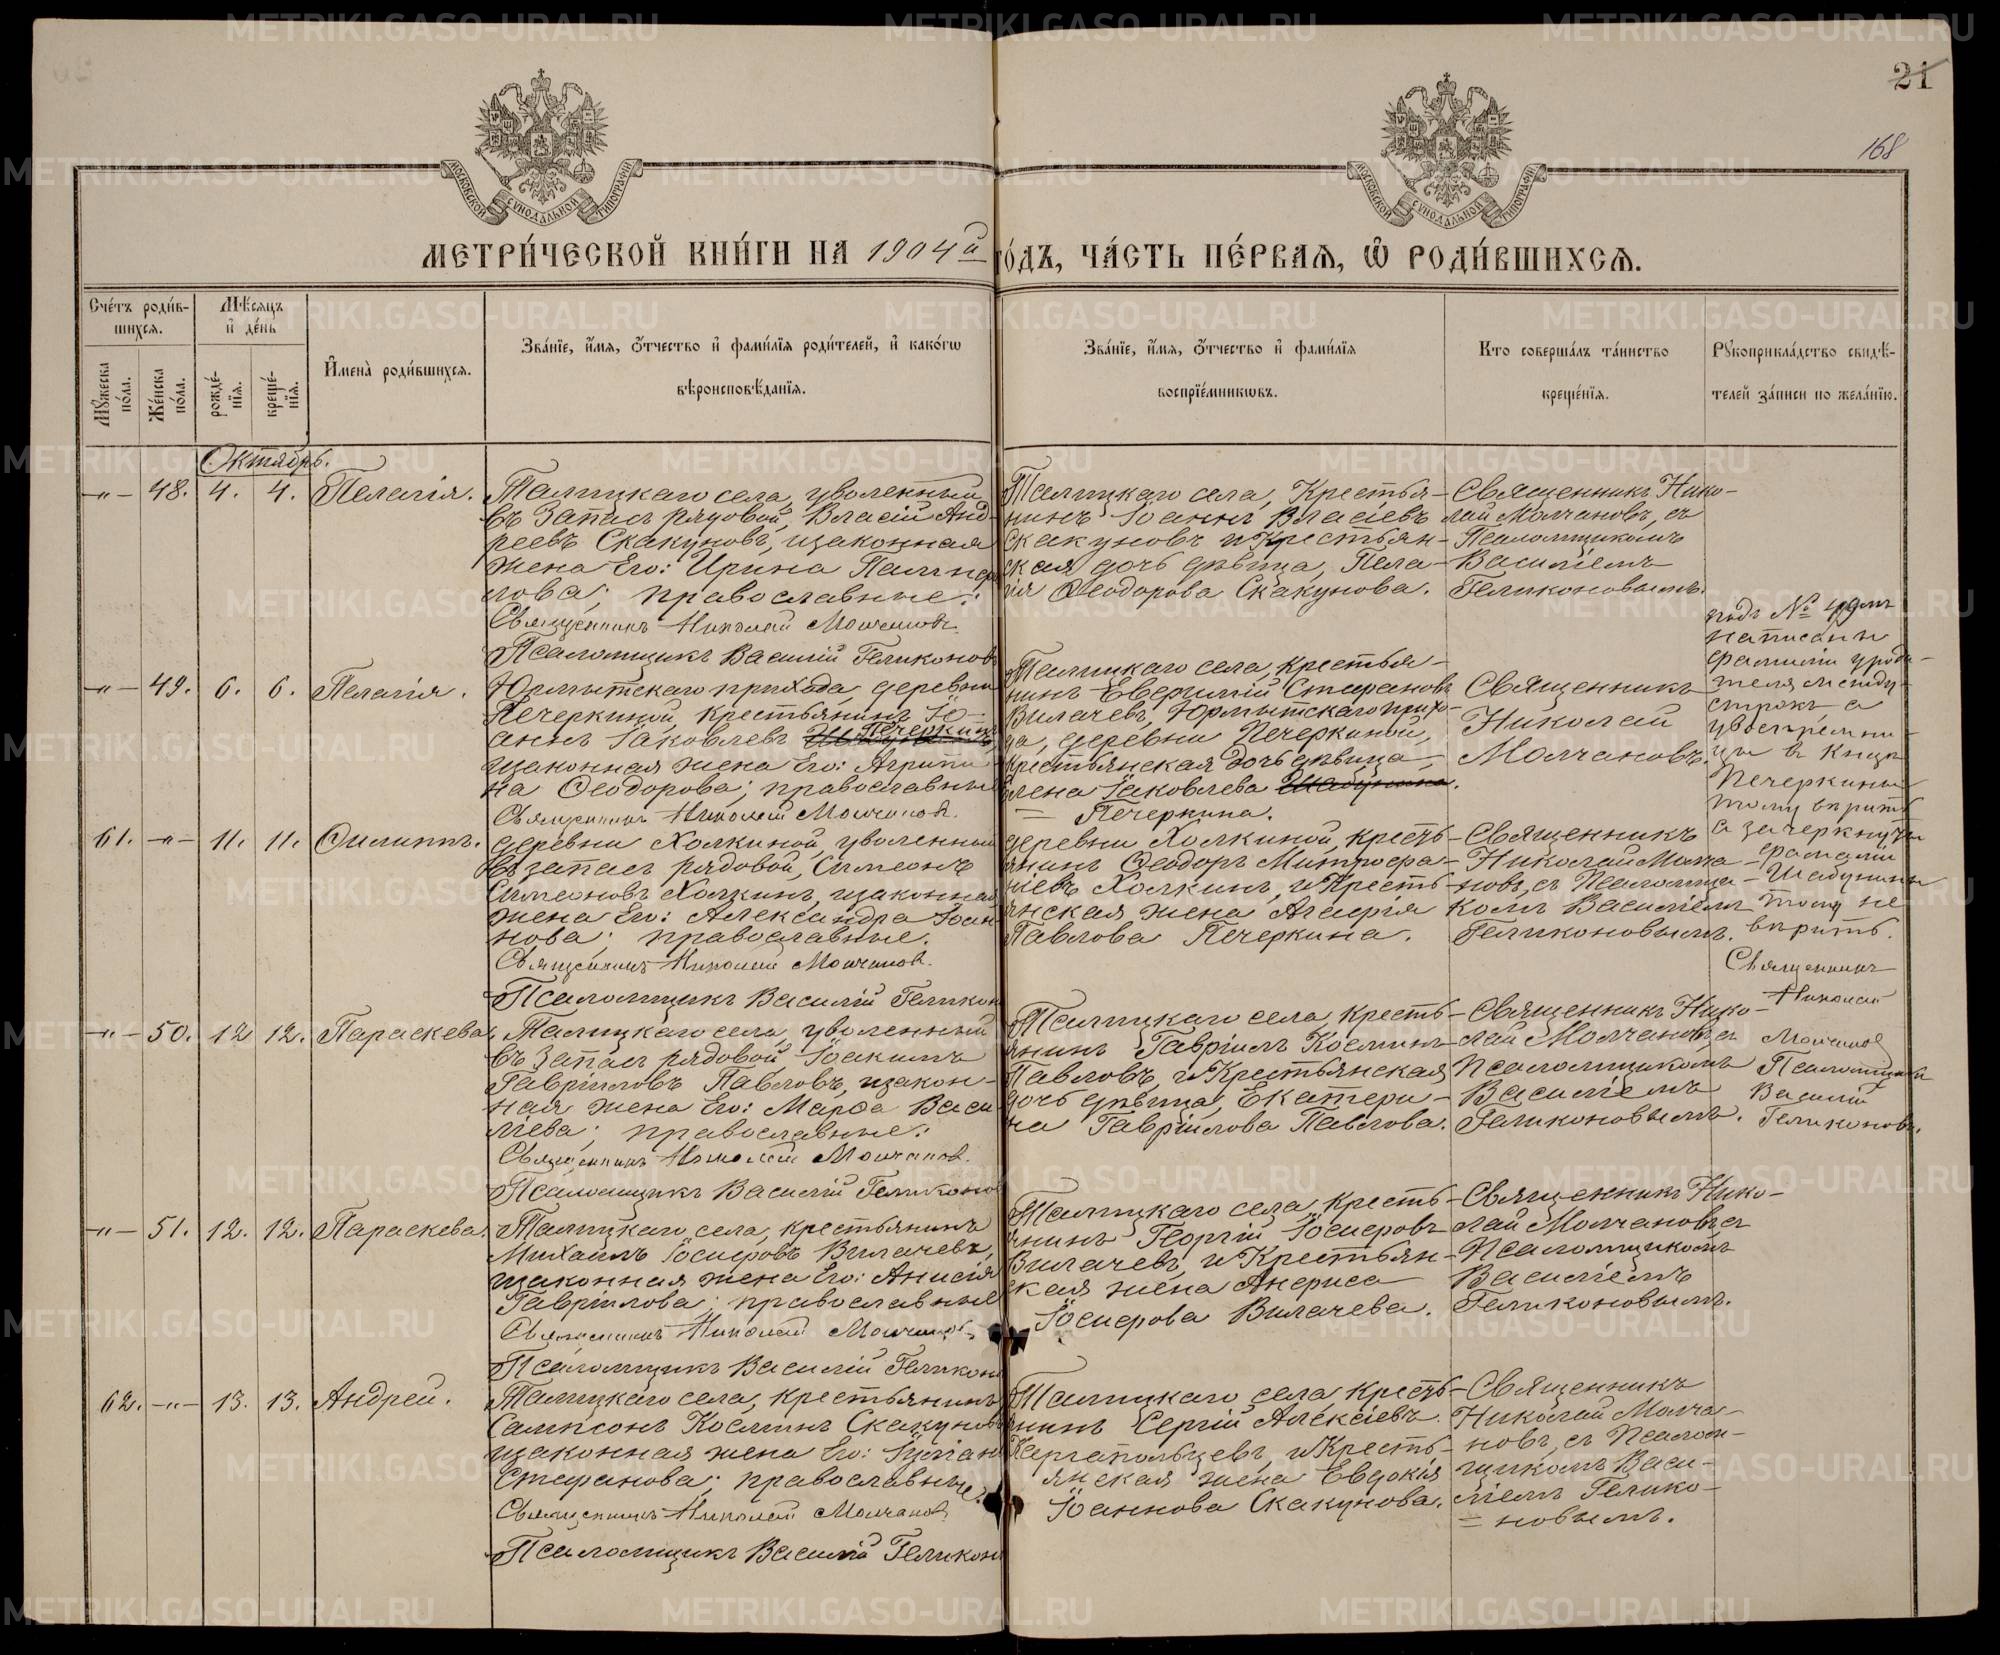 21
168
МОСКОВСКОЙ СѴНОДАЛЬНОЙ ТИПОГРАФІИ
МОСКОВСКОЙ СѴНОДАЛЬНОЙ ТИПОГРАФІИ
МЕТРИ́ЧЕСКОЙ КНИ́ГИ НА 1904й ГО́ДЪ, ЧА́СТЬ ПЕ́РВАѦ, Ѡ҆ РОДИ́ВШИХСѦ.
Сче́тъ роди́в-
шихсѧ.
Мѣ́сѧцъ
и҆ де́нь
Мꙋ́жеска по́ла.
Же́нска по́ла.
рожде́-
нїѧ.
креще́-
нїѧ.
И҆мена̀ роди́вшихсѧ.
Зва́нїе, и҆́мѧ, ѻ҆́тчество и҆ фами́лїѧ роди́телей, и҆ како́гѡ
вѣроисповѣ́данїѧ.
Зва́нїе, и҆́мѧ, ѻ҆́тчество и҆ фами́лїѧ
воспрїе́мникѡвъ.
Кто соверша́лъ та́инство
креще́нїѧ.
Рꙋкоприкла́дство свидѣ́-
телей за́писи по жела́нїю.
Октябрь.
-"- 48. 4. 4. Пелагія.
Талицкаго села, уволенный
въ запасъ рядовой, Власій Анд-
реевъ Скакуновъ, и законная
жена Его: Ирина Памфи
лова; православные.
Священникъ Николай Молчановъ.
Псаломщикъ Василій Геликонов
Талицкаго села, Крестья-
нинъ Іоаннъ Власіевъ
Скакуновъ и Крестьян-
ская дочь дѣвица, Пела-
гія Ѳеодорова Скакунова.
Священникъ Нико-
лай Молчановъ, съ
Псаломщикомъ
Василіемъ
Геликоновымъ.
-"- 49. 6. 6. Пелагія.
Юрмытскаго прихода, деревни
Печеркиной, крестьянинъ Іо-
аннъ Іаковлевъ Печеркинъ
и законная жена Его: Агрипи
на Ѳеодорова; православные
Священникъ Николай Молчановъ.
Талицкаго села, крестья-
нинъ Евфимій Стефановъ
Вилачевъ, Юрмытскаго прихо-
да, деревни Печеркиной,
крестьянская дочь дѣвица,
Елена Іаковлева Шабунина.
= Печеркина.
Священникъ
Николай
Молчановъ.
подъ № 49мъ
написаны
фамиліи у роди-
теля между-
строкъ, а
у воспріемни-
цы в концѣ
Печеркины
тому вѣрить
а зачеркнуты
фамиліи
Шабунины
тому не
вѣрить.
Священникъ
Николай
Молчановъ
Псаломщикъ
Василій
Геликоновъ.
61. -"- 11. 11. Филиппъ.
деревни Холкиной, уволенный
въ запасъ рядовой, Симеонъ
Симеоновъ Холкинъ, и законная
жена Его: Александра Іоан
нова; православные.
Священникъ Николай Молчановъ.
Псаломщикъ Василій Геликон
деревни Холкиной, кресть-
янинъ Ѳеодоръ Митрофа-
ніевъ Холкинъ, и Кресть-
янская жена Агафія
Павлова Печеркина.
Священникъ
Николай Молча-
новъ, съ Псаломщи-
комъ Василіемъ
Геликоновымъ.
-"- 50. 12 12. Параскева.
Талицкаго села, уволенный
въ запасъ рядовой, Іоакимъ
Гавріиловъ Павловъ, и закон-
ная жена Его: Марѳа Васи
ліева; православные.
Священникъ Николай Молчановъ.
Псаломщикъ Василій Геликоно
Талицкаго села, кресть-
янинъ Гавріилъ Косминъ
Павловъ, и Крестьянская
дочь дѣвица, Екатери-
на Гавріилова Павлова.
Священникъ Нико-
лай Молчановъ съ
Псаломщикомъ
Василіемъ
Геликоновымъ.
-"- 51. 12. 12. Параскева.
Талицкаго села, крестьянинъ
Михаилъ Іосифовъ Вилачевъ,
и законная жена Его: Анисія
Гавріилова; православные
Священникъ Николай Молчановъ.
Псаломщикъ Василій Геликон
Талицкаго села, кресть-
янинъ Георгій Іосифовъ
Вилачевъ, и Крестьян-
ская жена Анфиса
Іосифова Вилачева.
Священникъ Нико-
лай Молчановъ съ
Псаломщикомъ
Василіемъ
Геликоновымъ.
62. -"- 13. 13. Андрей.
Талицкаго села, крестьянинъ
Сампсонъ Косминъ Скакунов
и законная жена Его: Іуліан
Стефанова; православные.
Священникъ Николай Молчановъ
Псаломщикъ Василій Геликон
Талицкаго села, кресть-
янинъ Сергій Алексіевъ
Каргапольцевъ, и Кресть-
янская жена Евдокія
Іоаннова Скакунова.
Священникъ
Николай Молча-
новъ, съ Псалом-
щикомъ Васи-
ліемъ Гелико-
= новымъ.
METRIKI.GASO-URAL.RU